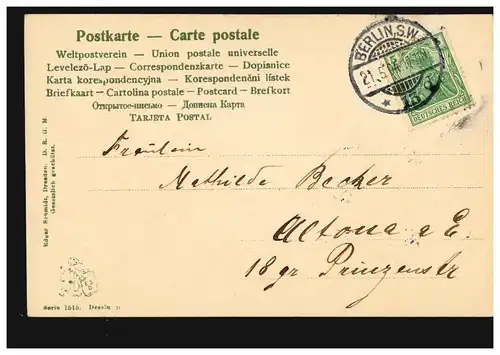 Postkarte — Carte postale
Weltpostverein — Union postale universelle
Levelező-Lap — Correspondenzkarte — Dopisnice
Karta korespondencyjna — Korespondenční lístek
Briefkaart — Cartolina postale — Postcard — Brefkort
Открытое письмо — Дописна Карта
TARJETA POSTAL
BERLIN, S.W.
DEUTSCHES REICH
Fräulein
Mathilde Becker
Altona a E.
18 gr Prinzenstr
Edgar Schmidt, Dresden. D. R. G. M.
Gesetzlich geschützt.
Serie 1515. Dessin